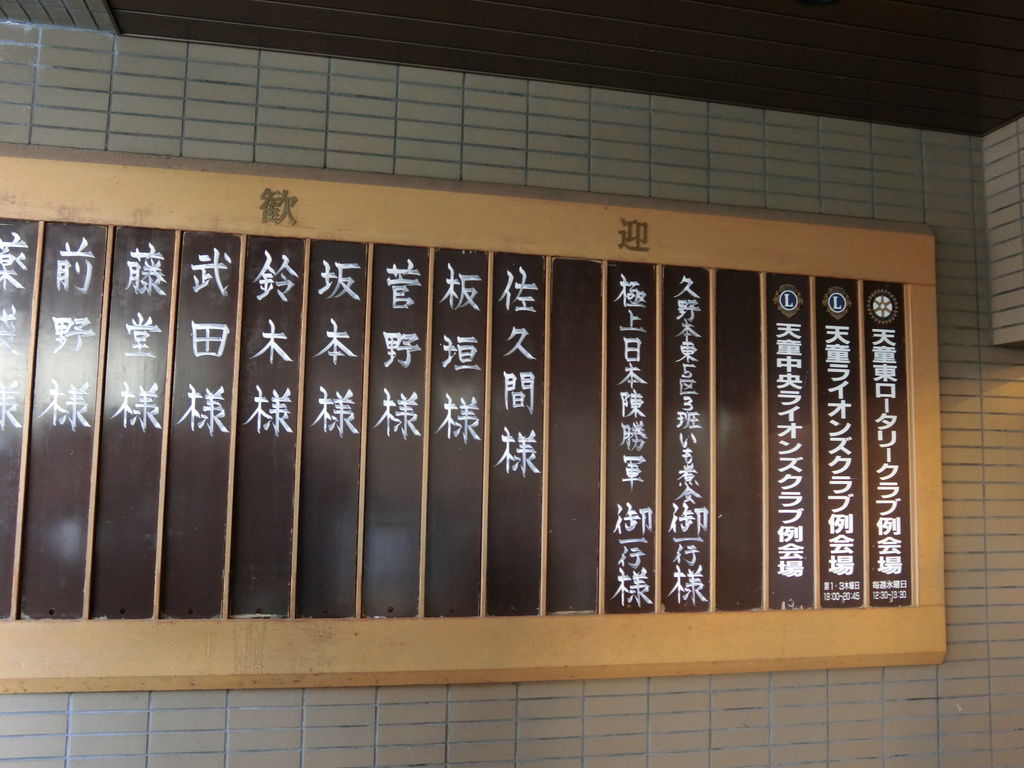 歓迎
天童東ロータリークラブ例会場
毎週水曜日
12:30~13:30
L
天童ライオンズクラブ例会場
第1・3木曜日
19:00~20:45
L
天童中央ライオンズクラブ例会場
久野本東1区3班いも煮会御一行様
極上日本陳勝軍 御一行様
佐久間様
板垣様
菅野様
坂本様
鈴木様
武田様
藤堂様
前野様